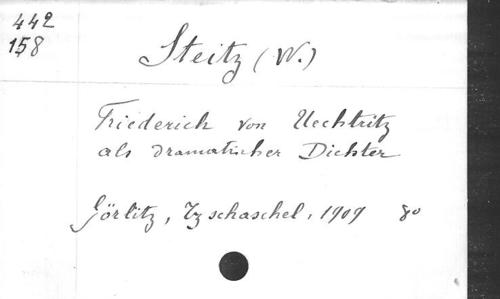 442
158
Steitz (W.)
Friederich von Uechtritz
als dramatischer Dichter
Görlitz, Tzschaschel, 1909 8o